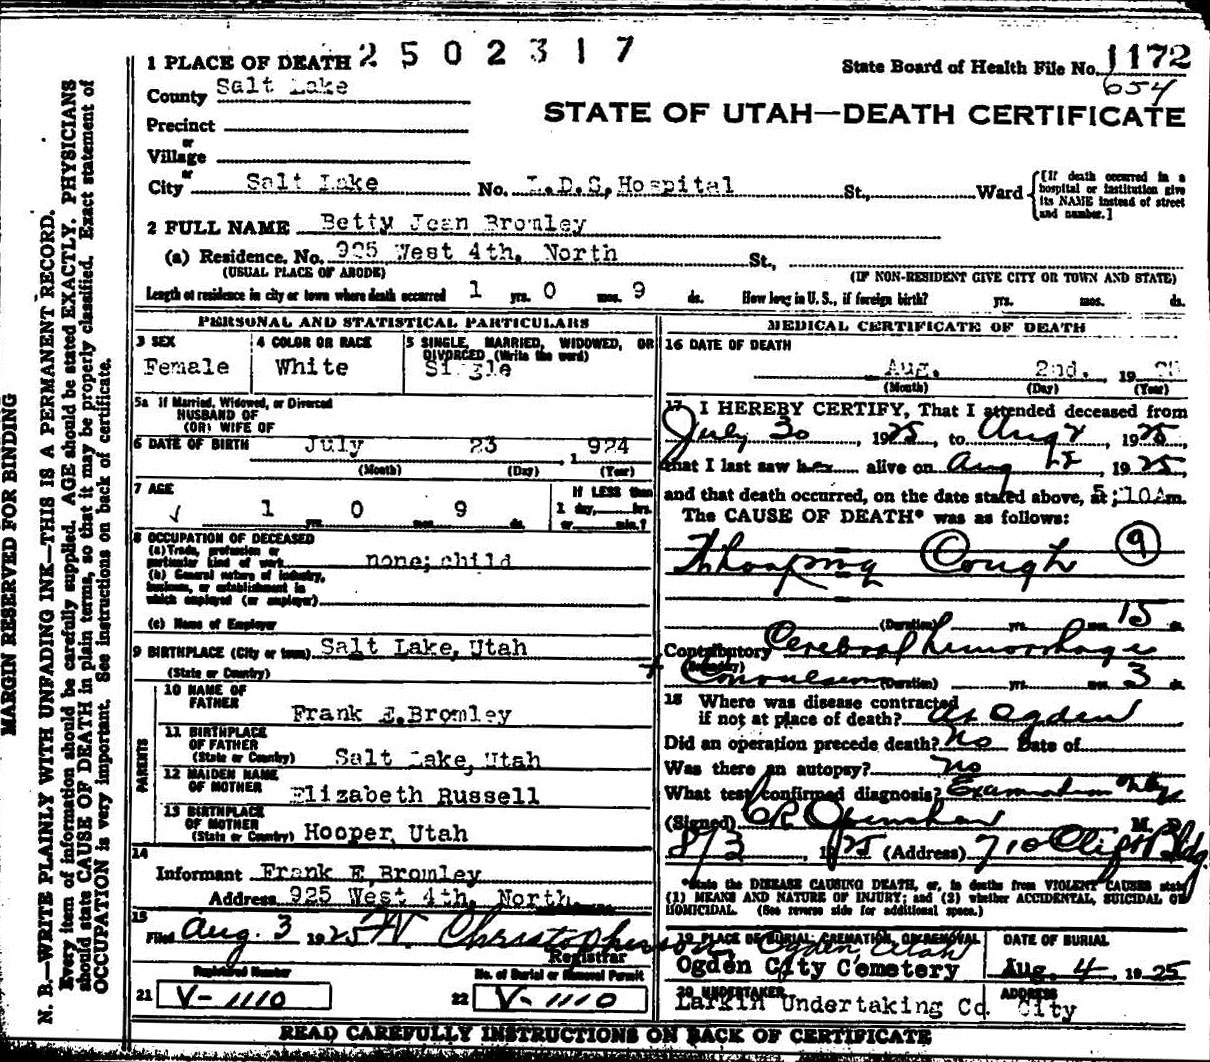 1 PLACE OF DEATH 2 5 0 2 3 1 7
State Board of Health File No. 1172
654
County Salt Lake
STATE OF UTAH—DEATH CERTIFICATE
Precinct
or
Village
or
City Salt Lake No. L.D.S. Hospital St., Ward
[If death occurred in a
hospital or institution give
its NAME instead of street
and number.]
2 FULL NAME Betty Jean Bromley
(a) Residence. No. 925 West 4th. North St.,
(USUAL PLACE OF ABODE) (IF NON-RESIDENT GIVE CITY OR TOWN AND STATE)
Length of residence in city or town where death occurred 1 yrs. 0 mos. 9 ds. How long in U. S., if foreign birth? yrs. mos. ds.
PERSONAL AND STATISTICAL PARTICULARS
3 SEX
Female
4 COLOR OR RACE
White
5 SINGLE, MARRIED, WIDOWED, OR
DIVORCED (Write the word)
Single
5a If Married, Widowed, or Divorced
HUSBAND OF
(OR) WIFE OF
6 DATE OF BIRTH July 23 1924
(Month) (Day) (Year)
7 AGE
1 yrs. 0 mos. 9 ds.
If LESS than
1 day, hrs.
or min.?
8 OCCUPATION OF DECEASED
(a) Trade, profession or
particular kind of work none; child
(b) General nature of industry,
business, or establishment in
which employed (or employer)
(c) Name of Employer
9 BIRTHPLACE (City or town) Salt Lake, Utah
(State or Country)
PARENTS
10 NAME OF
FATHER
Frank E. Bromley
11 BIRTHPLACE
OF FATHER
(State or Country) Salt Lake, Utah
12 MAIDEN NAME
OF MOTHER Elizabeth Russell
13 BIRTHPLACE
OF MOTHER
(State or Country) Hooper, Utah
14
Informant Frank E. Bromley
Address 925 West 4th, North
15
Filed Aug. 3 1925 W. Christopherson
Registrar
Registered Number
21 V-1110
No. of Burial or Removal Permit
22 V-1110
MEDICAL CERTIFICATE OF DEATH
16 DATE OF DEATH
Aug. 2nd. 19
(Month) (Day) (Year)
17 I HEREBY CERTIFY, That I attended deceased from
July 30, 1925, to Aug 2, 1925,
that I last saw her alive on Aug 1925,
and that death occurred, on the date stated above, at 5:10 A m.
The CAUSE OF DEATH* was as follows:
Whooping Cough 9
(Duration) yrs. mos. 15 ds.
Contributory Cerebral hemorrhage
(Secondary)
+ Convulsions (Duration) yrs. mos. 3 ds.
18 Where was disease contracted
if not at place of death? At Ogden
Did an operation precede death? No Date of
Was there an autopsy? no
What test confirmed diagnosis? Examination
(Signed) CR Openshaw M. D.
8/3, 1925 (Address) 710 Clift Bldg.
*State the DISEASE CAUSING DEATH, or, in deaths from VIOLENT CAUSES state
(1) MEANS AND NATURE OF INJURY; and (2) whether ACCIDENTAL, SUICIDAL OR
HOMICIDAL. (See reverse side for additional space.)
19 PLACE OF BURIAL, CREMATION, OR REMOVAL
Ogden, Utah
Ogden City Cemetery
DATE OF BURIAL
Aug. 4 1925
20 UNDERTAKER
Larkin Undertaking Co.
ADDRESS
City
READ CAREFULLY INSTRUCTIONS ON BACK OF CERTIFICATE
MARGIN RESERVED FOR BINDING
N. B.—WRITE PLAINLY WITH UNFADING INK—THIS IS A PERMANENT RECORD.
Every item of information should be carefully supplied. AGE should be stated EXACTLY. PHYSICIANS
should state CAUSE OF DEATH in plain terms, so that it may be properly classified. Exact statement of
OCCUPATION is very important. See instructions on back of certificate.